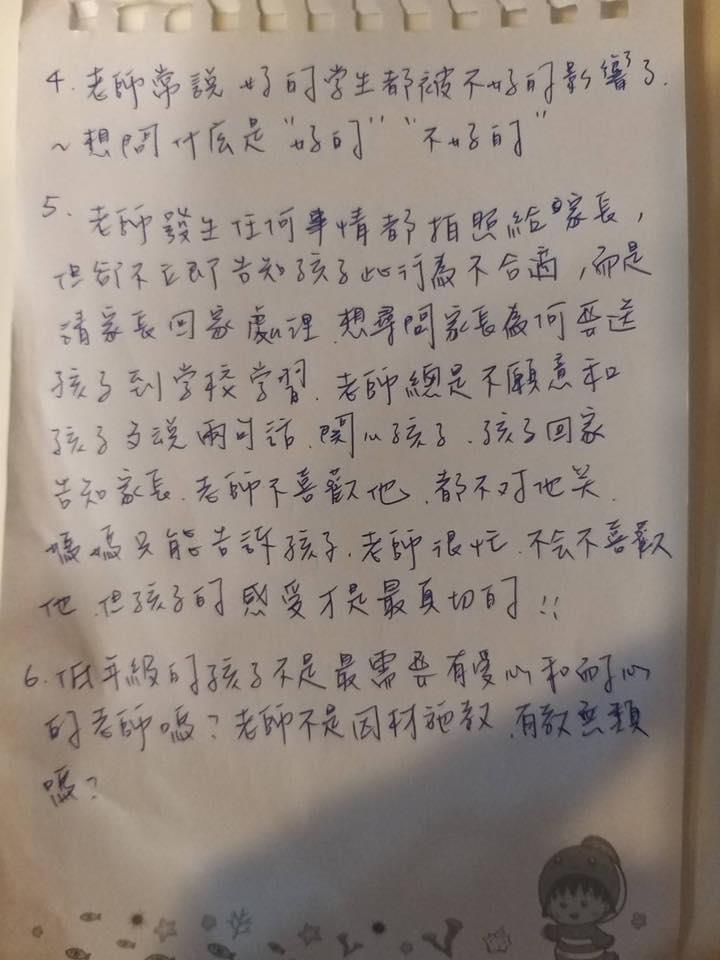 4. 老師常說好的学生都被不好的影響了.
~想問什庅是"好的""不好的"
5. 老師發生任何事情都拍照給家長,
但卻不立即告知孩子此行為不合適,而是
請家長回家處理.想尋問家長為何要送
孩子到学校学習.老師總是不願意和
孩子多說兩句話.関心孩子.孩子回家
告知家長.老師不喜歡他.都不对他笑.
媽媽只能告訴孩子.老師很忙.不会不喜歡
他.但孩子的感受才是最真切的!!
6. 低年級的孩子不是最需要有愛心和耐心
的老師嗎?老師不是因材施教.有教無類
嗎?